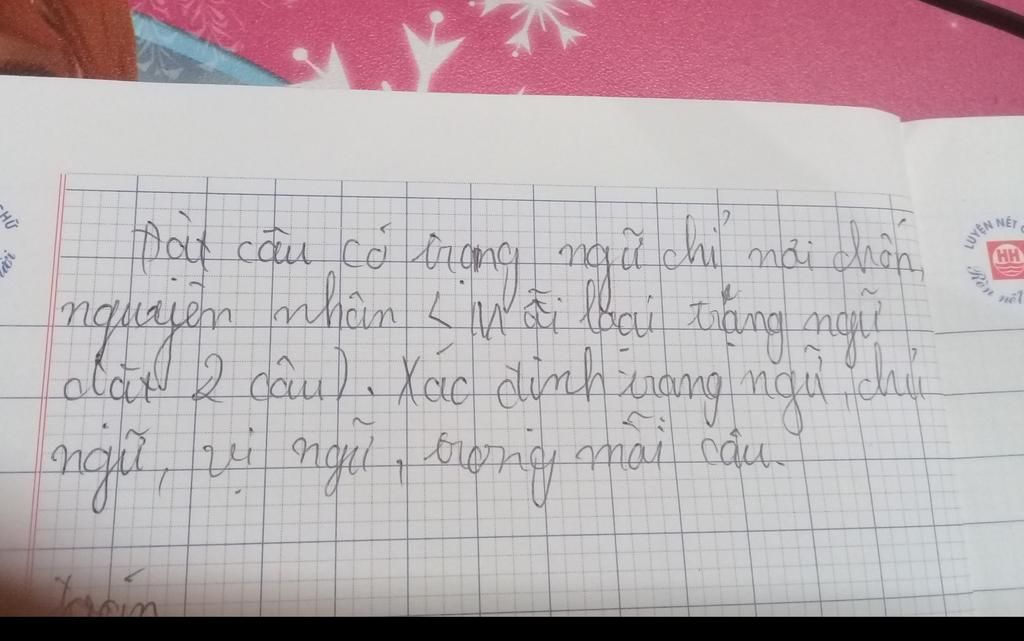 Đặt câu có trạng ngữ chỉ nơi chốn,
nguyên nhân (Mỗi loại trạng ngữ
đặt 2 câu). Xác định trạng ngữ, chủ
ngữ, vị ngữ, trong mỗi câu.
LUYỆN NÉT
HH
Rèn nết